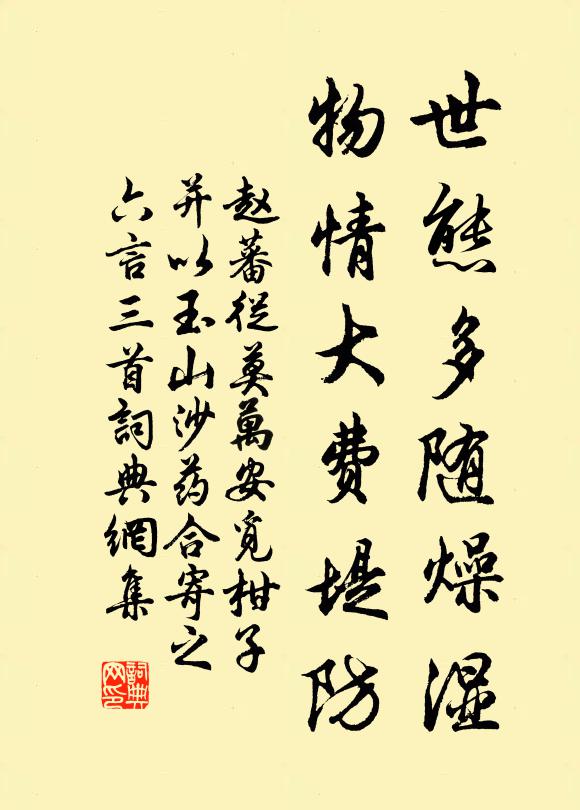 世態多随燥湿
物情大费堤防
赵蕃從莫萬安覓柑子
并以玉山沙药合寄之
六言三首詞典網集
詞典网印